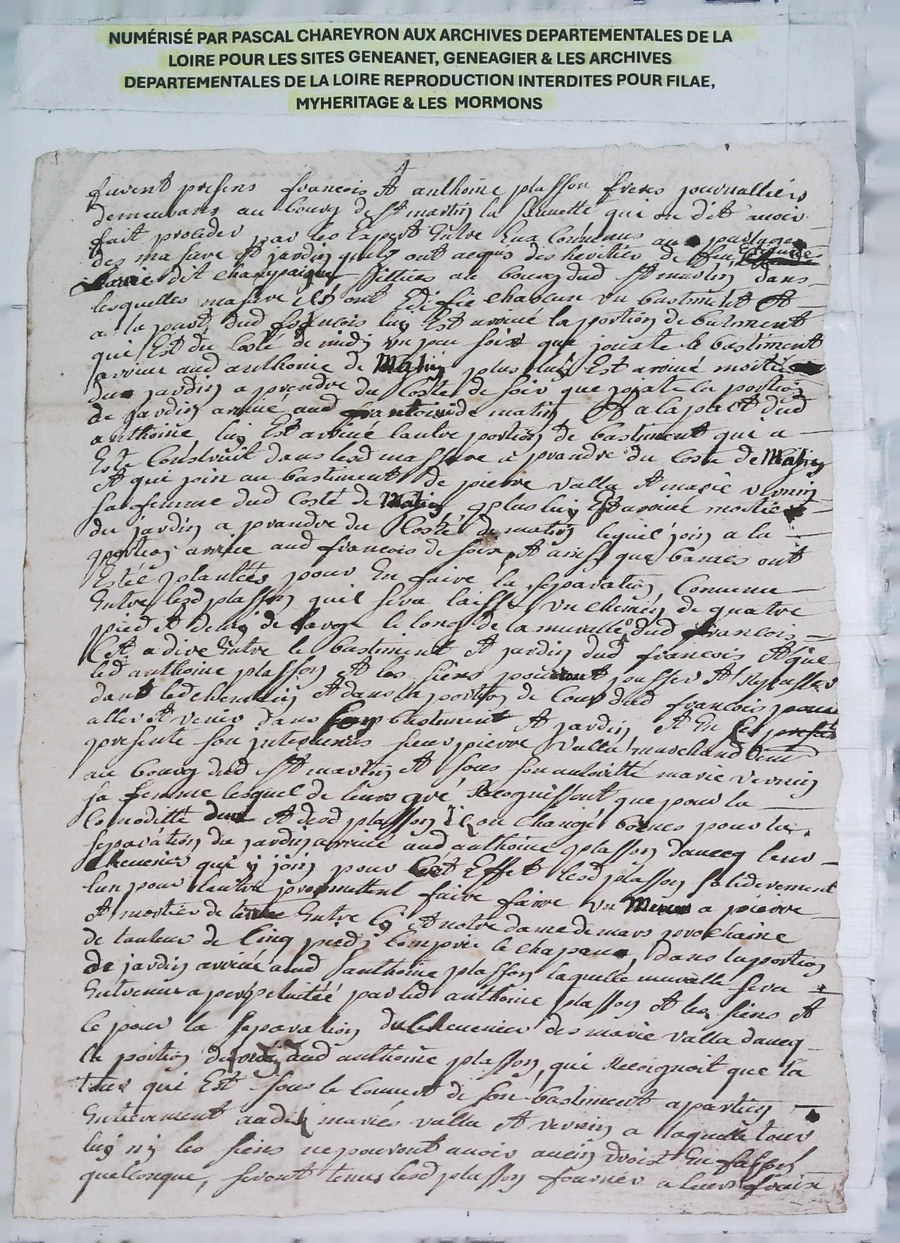 NUMÉRISÉ PAR PASCAL CHAREYRON AUX ARCHIVES DEPARTEMENTALES DE LA
LOIRE POUR LES SITES GENEANET, GENEAGIER & LES ARCHIVES
DEPARTEMENTALES DE LA LOIRE REPRODUCTION INTERDITES POUR FILAE,
MYHERITAGE & LES MORMONS
furent presens francois et anthoine plasson freres journalliers
demeurans au bourg de St martin la sauvetté qui on dit avoir
fait proceder par les Expert Entre Eux Convenus au partage
des masure et jardin quils ont acquis des heritiers de feu
dit champaigne sittués au bourg dud St martin dans
lesquelles masure ils ont Edifié chacun un bastiment et
a la part dud francois luy Est arrivé la portion de batiment
qui Est du costé de midy un peu soir que jouxte le bastiment
arrivé aud anthoine de Matin plus luy Est arrivé moitié
du jardin a prendre du Costé de soir que joxte la portion
de jardin arrivé aud antoine de matin Et a la part dud
anthoine luy Est arrivé lautre portion de bastiment qui a
Esté Construit dans lesd masure a prandre du Costé de Matin
et que join au bastiment de pierre valla et marie vernin
sa femme dud Costé de Matin plus luy Est arrivé moitié
du jardin a prandre du Costé de matin lequel join a la
portion arrivée aud francois de soir, et ainsi que bornes ont
Estée plantées pour En faire la separation, Convenu
Entre lesd plasson quil sera laissé un chemin de quatre
pied et demis de large le long de la muralle dud francois
Cest a dire Entre le bastiment et jardin dud francois et que
led anthoine plasson et les siens pourront passer et repasser
dans led chemin et dans la portion de Cour dud francois pour
aller et venir dans son bastiment et jardin et En
presente son intervenus sieur pierre valla marchand demt
au bourg dud St martin et sous son autorité marie vernin
sa femme lesquel de leurs gré Recognissent que pour la
Comodité et desd plasson ils on changé bornes pour la
separation du jardin arrivé aud anthoine plasson dauecq leur
cheneuier qui y join pour Cet Effet lesd plasson solidairement
lun pour lautre promettent faire faire un Mur a pierre
et mortier de terre Entre Cy et notre dame de mars prochaine
de lauteur de Cinq pied Compris le chapeau, dans la portion
de jardin arrivé aud anthoine plasson laquelle muralle sera
Entrenue a perpetuitée par led anthoine plasson et les siens et
Ce pour la separation du cheneuier des marie valla dauecq
la portion aud anthoine plasson, qui Recognoit que la
tour qui Est sous le Couvert de son bastiment apartien
Entierement aud mariés valla et vernin a laquelle tour
luy ny les siens ne pouront auoir aucun droit En fasson
quelconque, seront tenus lesd plasson fournir a leurs fraix